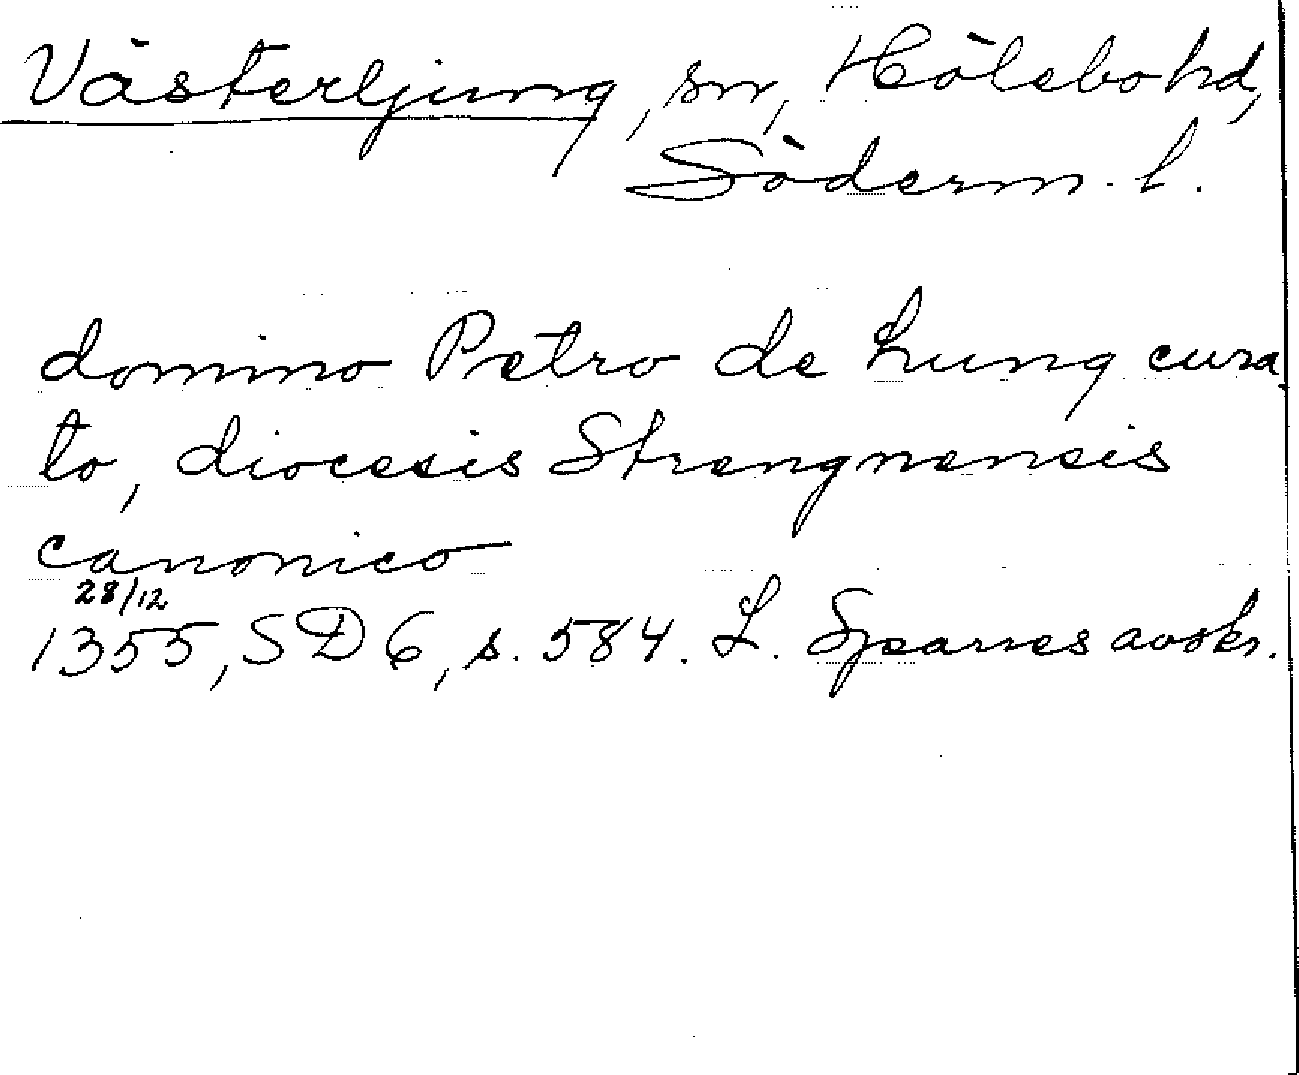 Västerljung, sn, Hölebo hd,
Söderm. l.
domino Petro de Liung cura
to, diocesis Strengnensis
canonico
28/12
1355, SD 6, s. 584. L. Sparres avskr.